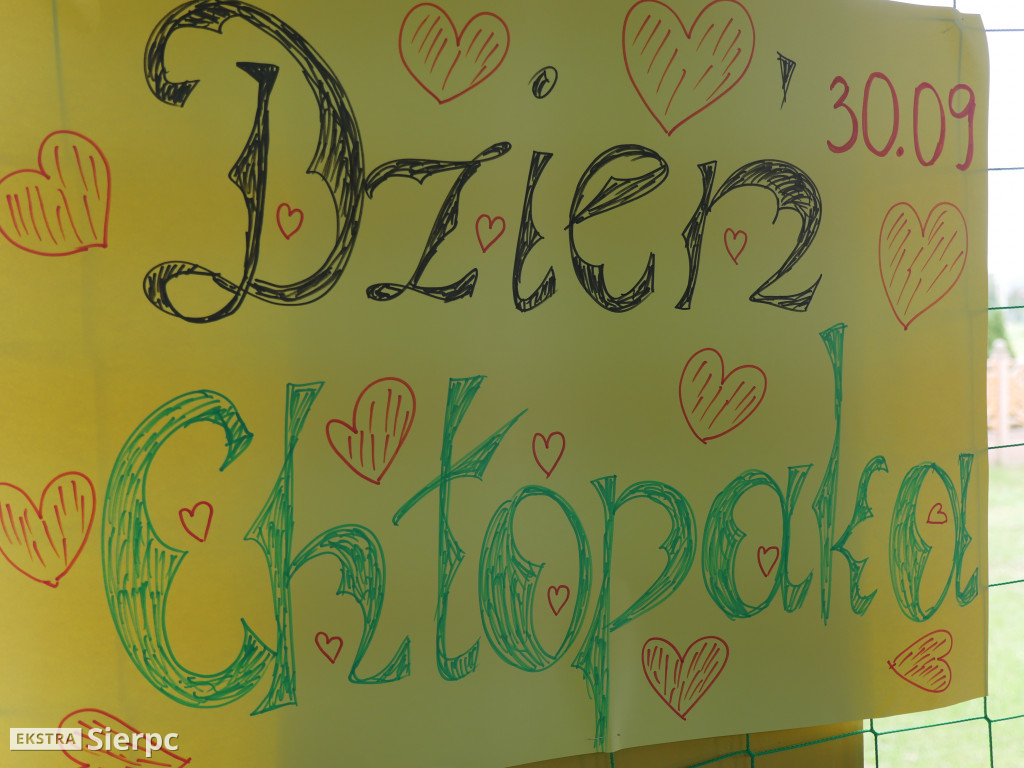 Dzień
30.09
Chłopaka
EKSTRA Sierpc